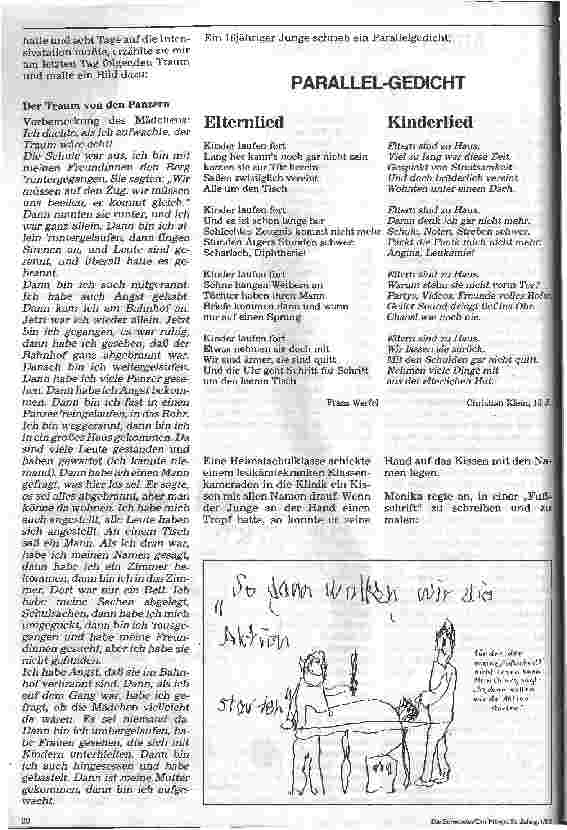 hatte und acht Tage auf die Inten-
sivstation mußte, erzählte sie mir
am letzten Tag folgenden Traum
und malte ein Bild dazu:
Der Traum von den Panzern
Vorbemerkung des Mädchens:
Ich dachte, als ich aufwachte, der
Traum wäre echt!
Die Schule war aus, ich bin mit
meinen Freundinnen den Berg
'runtergegangen. Sie sagten: „Wir
müssen auf den Zug, wir müssen
uns beeilen, er kommt gleich."
Dann rannten sie runter, und ich
war ganz allein. Dann bin ich al-
lein 'runtergelaufen, dann fingen
Sirenen an, und Leute sind ge-
rannt, und überall hatte es ge-
brannt.
Dann bin ich auch mitgerannt.
Ich habe auch Angst gehabt.
Dann kam ich am Bahnhof an.
Jetzt war ich wieder allein. Jetzt
bin ich gegangen, es war ruhig,
dann habe ich gesehen, daß der
Bahnhof ganz abgebrannt war.
Danach bin ich weitergelaufen.
Dann habe ich viele Panzer gese-
hen. Dann habe ich Angst bekom-
men. Dann bin ich fast in einen
Panzer 'reingelaufen, in das Rohr.
Ich bin weggerannt, dann bin ich
in ein großes Haus gekommen. Da
sind viele Leute gestanden und
haben gewartet (ich kannte nie-
mand). Dann habe ich einen Mann
gefragt, was hier los sei. Er sagte,
es sei alles abgebrannt, aber man
könne da wohnen. Ich habe mich
auch angestellt, alle Leute haben
sich angestellt. An einem Tisch
saß ein Mann. Als ich dran war,
habe ich meinen Namen gesagt,
dann habe ich ein Zimmer be-
kommen, dann bin ich in das Zim-
mer. Dort war nur ein Bett. Ich
habe meine Sachen abgelegt,
Schulsachen, dann habe ich mich
umgeguckt, dann bin ich 'rausge-
gangen und habe meine Freun-
dinnen gesucht, aber ich habe sie
nicht gefunden.
Ich habe Angst, daß sie im Bahn-
hof verbrannt sind. Dann, als ich
auf dem Gang war, habe ich ge-
fragt, ob die Mädchen vielleicht
da wären. Es sei niemand da.
Dann bin ich umhergelaufen, ha-
be Frauen gesehen, die sich mit
Kindern unterhielten. Dann bin
ich auch hingesessen und habe
gebastelt. Dann ist meine Mutter
gekommen, dann bin ich aufge-
wacht.
20
Ein 16jähriger Junge schrieb ein Parallelgedicht:
PARALLEL-GEDICHT
Elternlied
Kinder laufen fort
Lang her kann's noch gar nicht sein
kamen sie zur Tür herein
Saßen zwistiglich vereint
Alle um den Tisch
Kinder laufen fort
Und es ist schon lange her
Schlechtes Zeugnis kommt nicht mehr
Stunden Ärgers Stunden schwer
Scharlach, Diphtherie!
Kinder laufen fort
Söhne hangen Weibern an
Töchter haben ihren Mann
Briefe kommen dann und wann
nur auf einen Sprung
Kinder laufen fort
Etwas nehmen sie doch mit
Wir sind ärmer, sie sind quitt
Und die Uhr geht Schritt für Schritt
um den leeren Tisch
Franz Werfel
Kinderlied
Eltern sind zu Haus.
Viel zu lang war diese Zeit.
Gespickt von Streitsamkeit
Und doch brüderlich vereint
Wohnten unter einem Dach.
Eltern sind zu Haus.
Daran denk ich gar nicht mehr.
Schule, Noten, Streben schwer.
Pickt die Panik mich nicht mehr
Angina, Leukämie!
Eltern sind zu Haus.
Warum stehn sie nicht vorm Tor?
Partys, Videos, Freunde voller Rohr.
Geiler Sound dringt tief ins Ohr.
Chaos! wie noch nie.
Eltern sind zu Haus.
Wir lassen sie zurück.
Mit den Schulden gar nicht quitt.
Nehmen viele Dinge mit
aus der elterlichen Hut.
Christian Klein, 16 J.
Eine Heimatschulklasse schickte
einem leukämiekranken Klassen-
kameraden in die Klinik ein Kis-
sen mit allen Namen drauf. Wenn
der Junge an der Hand einen
Tropf hatte, so konnte er seine
Hand auf das Kissen mit den Na-
men legen.
Monika regte an, in einer „Fuß-
schrift" zu schreiben und zu
malen:
„So dann wollen wir die
Aktion
starten"
Für den, der
meine „Fußschrift"
nicht lesen kann
„So, dann wollen
wir die Aktion
starten".
Die Schwester/Der Pfleger